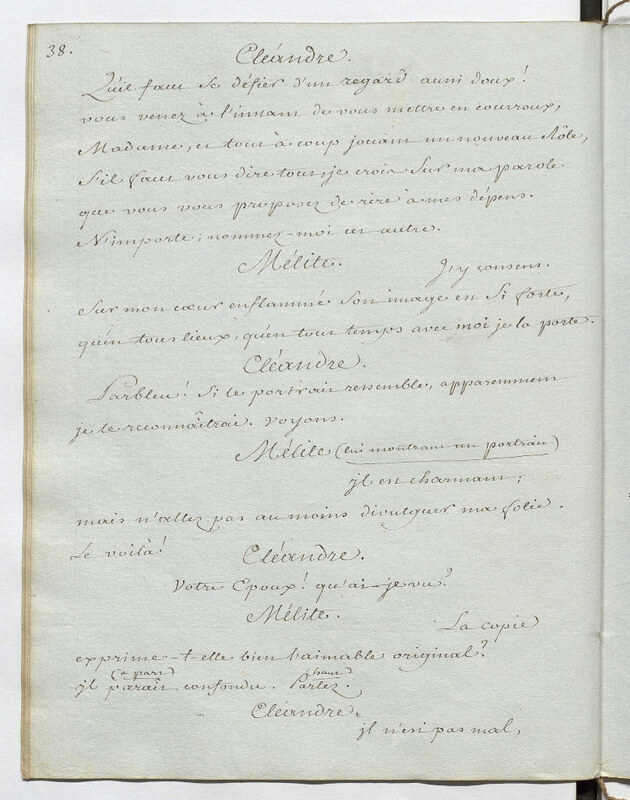 38.
Cléandre.
Qu'il faut se défier d'un regard aussi doux!
vous venez à l'instant de vous mettre en courroux,
Madame, et tout à coup jouant un nouveau Rôle,
S'il faut vous dire tout, je crois Sur ma parole
que vous vous proposez de rire à mes dépens.
N'importe; nommez-moi cet autre.
Mélite.
J'y consens.
Sur mon cœur enflammé Son image est Si forte,
qu'en tous lieux, qu'en tout temps avec moi je la porte.
Cléandre.
Parbleu! Si le portrait ressemble, apparemment
je le reconnaîtrai. voyons.
Mélite (lui montrant un portrait)
jl est charmant;
mais n'allez pas au moins divulguer ma folie.
Le voilà!
Cléandre.
Votre Epoux! qu'ai-je vu?
Mélite.
La copie
exprime-t-elle bien l'aimable original?
(à part) (haut)
jl paraît confondu. Parlez.
Cléandre.
jl n'est pas mal,